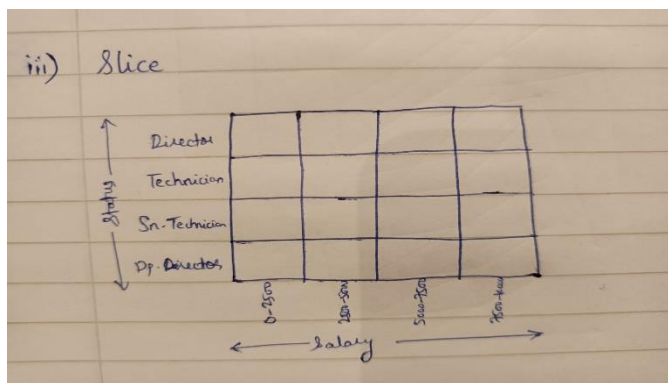 iii) Slice
Status
Director
Technician
Sn-Technician
Dp-Director
0-2500
2500-5000
5000-7500
7500-10000
Salary